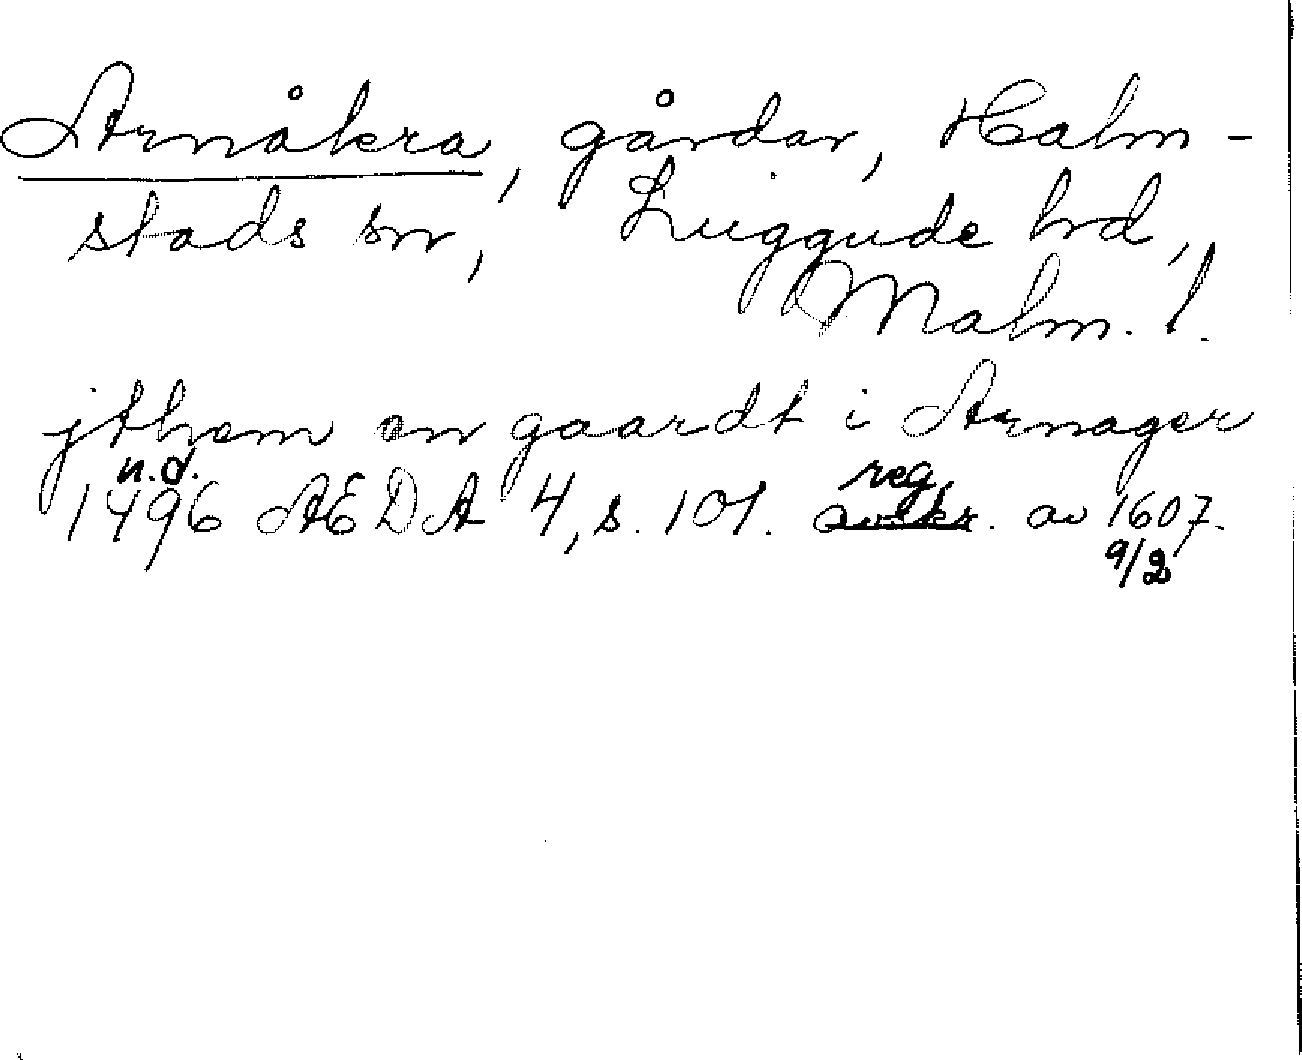 Arnåkra, gårdar, Halm-
stads sn, Luggude hd,
Malm. l.
jthem en gaardt i Arnager
n.d. reg.
1496 AEDA 4, s. 101. avskr. av 1607.
9/2